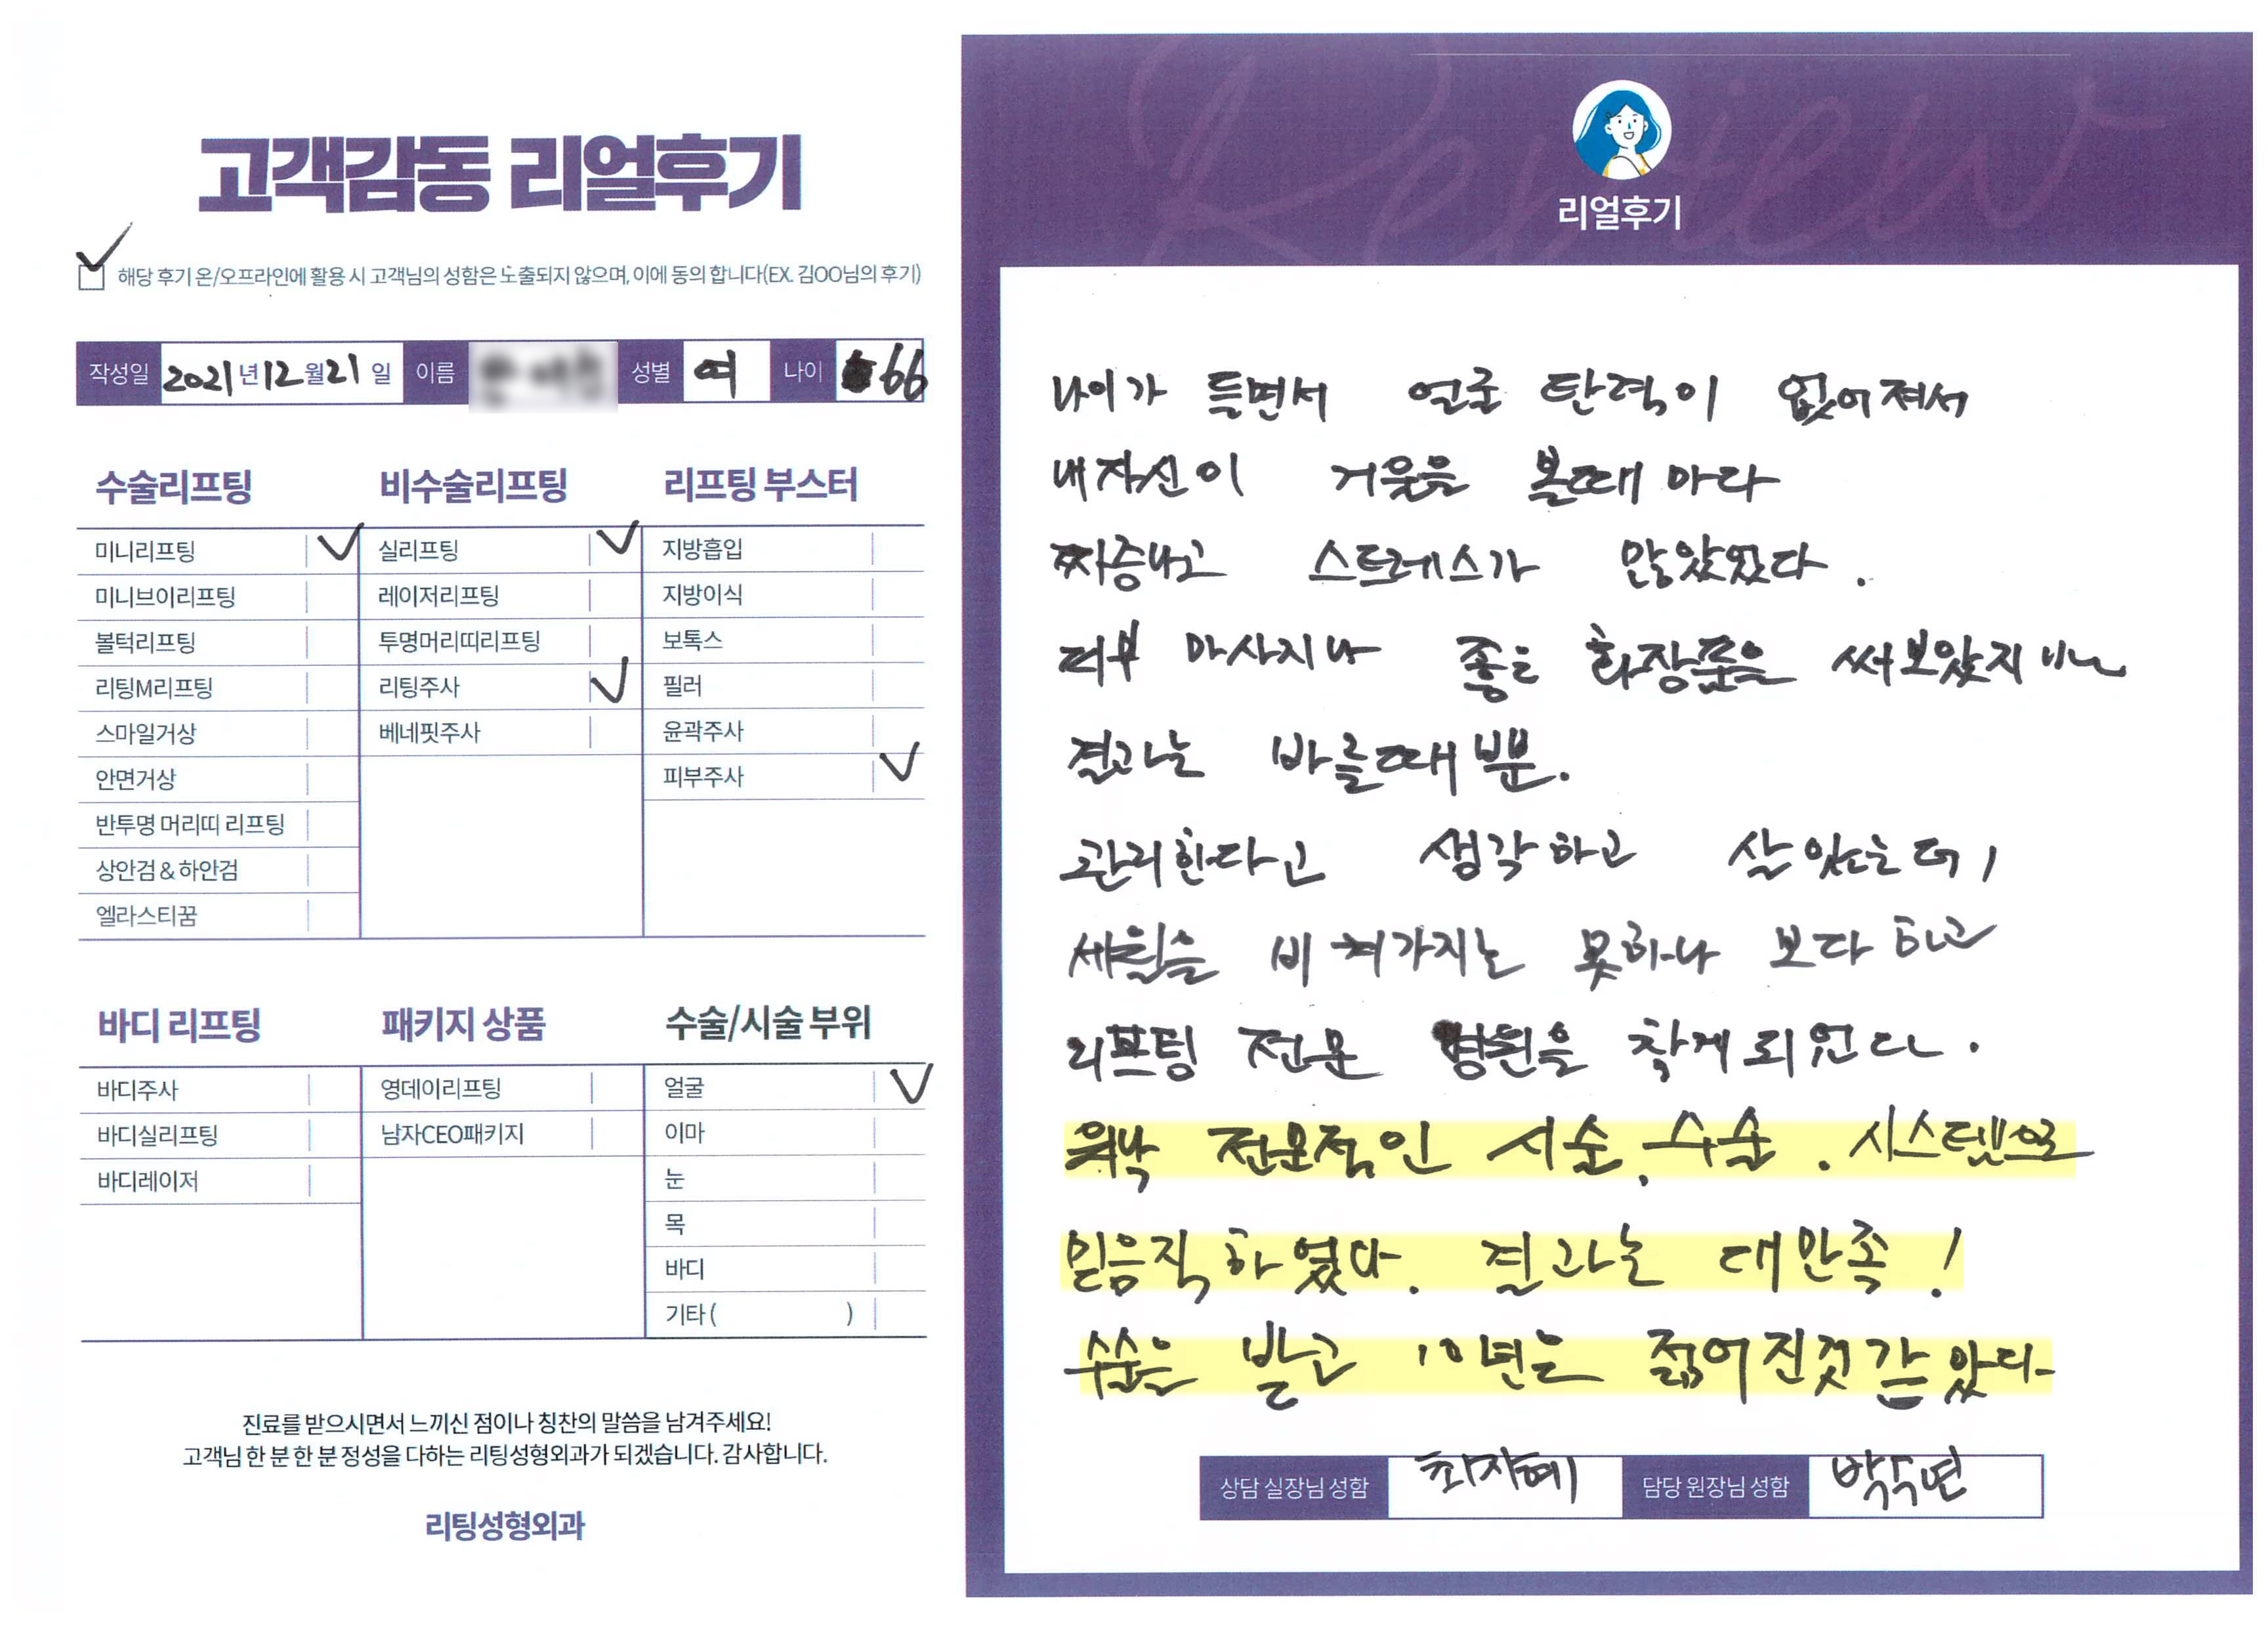 고객감동 리얼후기
해당 후기 온/오프라인에 활용 시 고객님의 성함은 노출되지 않으며, 이에 동의 합니다(EX. 김OO님의 후기)
작성일 2021년 12월 21일 이름 성별 여 나이 66
수술리프팅
미니리프팅
미니브이리프팅
볼턱리프팅
리팅M리프팅
스마일거상
안면거상
반투명 머리띠 리프팅
상안검 & 하안검
엘라스티꿈
비수술리프팅
실리프팅
레이저리프팅
투명머리띠리프팅
리팅주사
베네핏주사
리프팅 부스터
지방흡입
지방이식
보톡스
필러
윤곽주사
피부주사
바디 리프팅
바디주사
바디실리프팅
바디레이저
패키지 상품
영데이리프팅
남자CEO패키지
수술/시술 부위
얼굴
이마
눈
목
바디
기타 ( )
진료를 받으시면서 느끼신 점이나 칭찬의 말씀을 남겨주세요!
고객님 한 분 한 분 정성을 다하는 리팅성형외과가 되겠습니다. 감사합니다.
리팅성형외과
Review
리얼후기
나이가 들면서 얼굴 탄력이 없어져서
내자신이 거울을 볼때마다
짜증나고 스트레스가 많았었다.
피부 마사지나 좋은 화장품을 써보았지만
결과는 바를때뿐.
관리한다고 생각하고 살았는데,
세월을 비켜가지는 못하나 보다 하고
리프팅 전문 병원을 찾게되었다.
워낙 전문적인 시술, 수술, 시스템으로
믿음직하였다. 결과는 대만족!
수술은 받고 10년은 젊어진것 같았다
상담 실장님 성함 최지혜 담당 원장님 성함 박수연